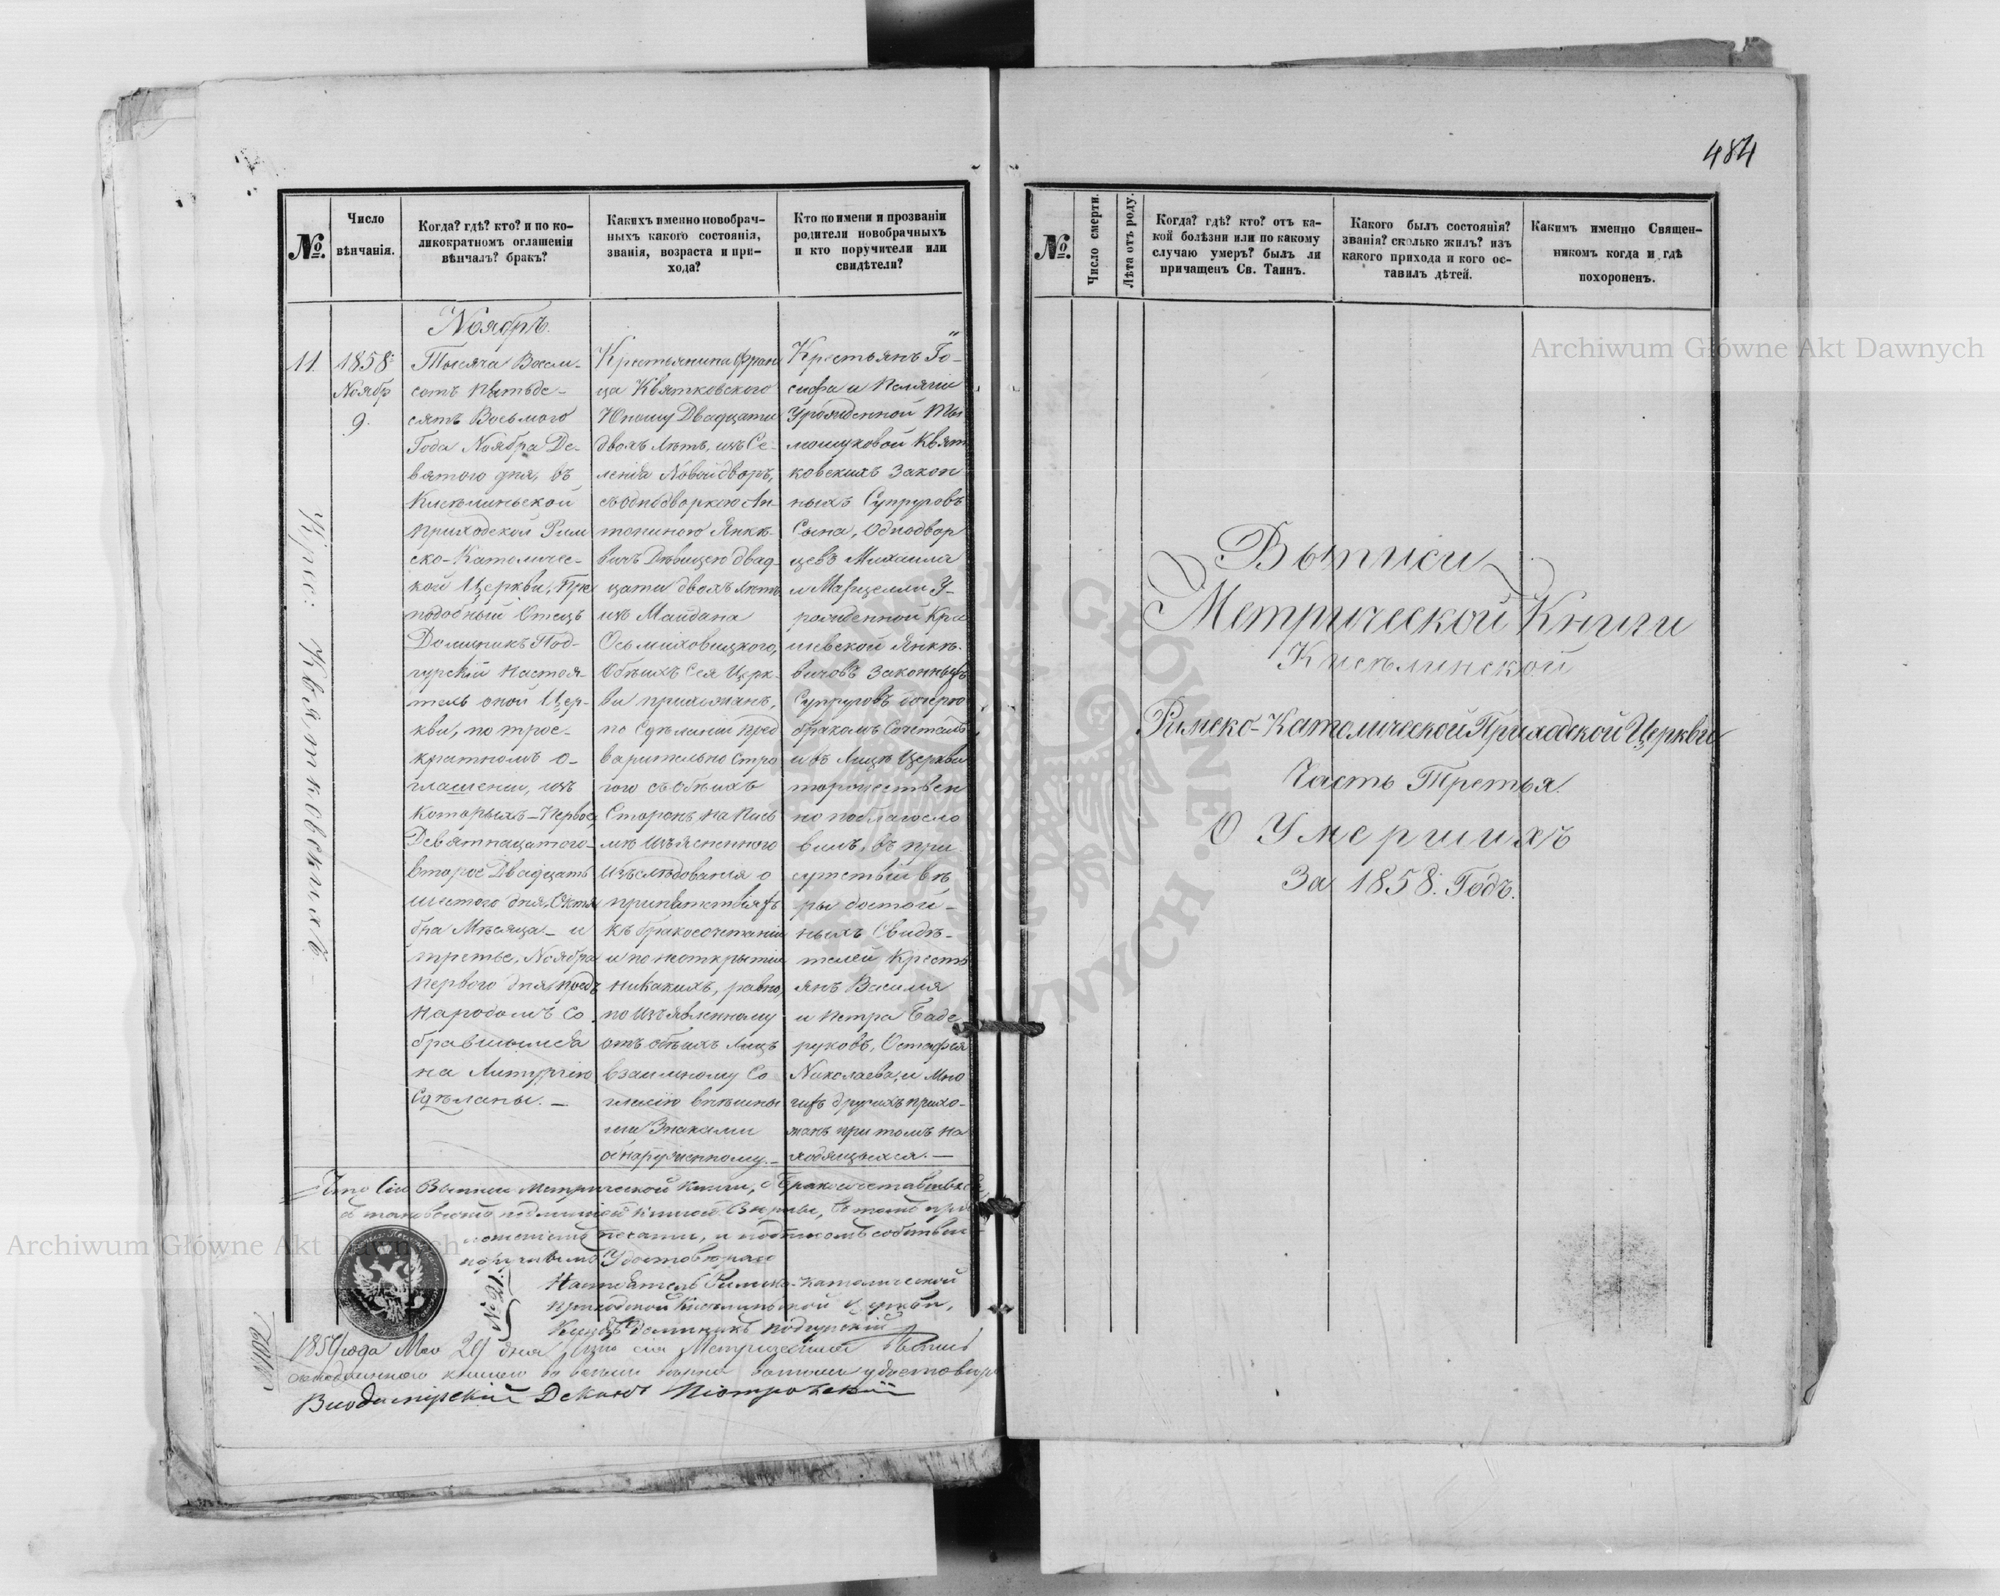 484
№.
Число
вѣнчанія.
Когда? гдѣ? кто? и по ко-
ликократномъ оглашеніи
вѣнчалъ? бракъ?
Какихъ именно новобрач-
ныхъ какого состоянія,
званія, возраста и при-
хода?
Кто по имени и прозванію
родители новобрачныхъ
и кто поручители или
свидѣтели?
11
1858
Ноябр
9.
Ноябрь.
Тысяча Восем-
сотъ пятьде-
сятъ Восьмого
Года Ноября Де-
вятого дня, въ
Киселиньской
приходской Рим
ско-Католичес-
кой Церкви, Пре
подобный Отецъ
Доминикъ Под-
гурскій Настоя-
тель оной Цер-
кви, по трое-
кратномъ о-
глашеніи, изъ
которыхъ-первое,
Девятнацатого-
второе Двадцать
шестого дня, Октя
бра Мѣсяца- и
третье, Ноября
первого дня предъ
народомъ Со
бравшымся
на Литургію
Сдѣланы. —
Крестьянина Фран
ца Квятковского
Юношу Двадцати
двохъ лѣтъ, изъ Се-
ленія Новойдворъ,
съ однодворкою Ан-
тониною Янкѣ-
вичъ Дѣвицею двад-
цати двохъ лѣтъ
изъ Майдана
Осьмиховицкого,
Обѣихъ Сея Церк-
ви прихожанъ,
по Сдѣланіи пред
варительно Стро
гого съ обѣихъ
Сторонъ на Пись
мѣ изъясненного
изъслѣдованія о
препятствіяхъ
къ бракосочетанію
и по неоткрытіи
никакихъ, равно,
по изъявленному
отъ обѣихъ лицъ
взаимному Со
гласію внѣшны
ми Знаками
обнаруженному.—
Крестьянъ Іо-
сифа и Пелагіи
Урожденной
Квят
ковскихъ Закон
ныхъ Супруговъ
Сына, Однодвор
цевъ Михаила
и Марцелли У-
рожденной Кра
шевской Янкѣ-
вичовъ Законныхъ
Супруговъ дочерю
бракомъ Сочеталъ
и въ Лицѣ Церкви
торжествен
но поблагосло
вилъ, въ при
сутствіи вѣ
ры достой-
ныхъ Свидѣ-
телей Кресть
янъ Василія
и Петра Баде
руковъ, Остафея
Николаева, и мно
гихъ другихъ прихо-
жанъ при томъ на
ходящыхся. —
Курсс: Квятковскихъ —
Что Сіи Выписи Метрической Книги, о Бракосочетавшыхся,
съ таковскою подлинной книгой Вѣрны, въ томъ при
ложеніемъ печати, и подписомъ собствен
норучнымъ Удостовѣряю
Настоятель Римско-Католической
приходской Киселиньской Церкви,
Ксендзъ Доминикъ Подгурскій
№ 21.
года Мая 29 дня что сія Метрическая Выпись
удостовѣр
Владимірскій Деканъ Піотровскій
№.
Число смерти.
Лѣта отъ роду.
Когда? гдѣ? кто? отъ ка-
кой болѣзни или по какому
случаю умеръ? былъ ли
причащенъ Св. Таинъ.
Какого былъ состоянія?
званія? сколько жилъ? изъ
какого прихода и кого ос-
тавилъ дѣтей.
Какимъ именно Священ-
никомъ когда и гдѣ
похороненъ.
Выписи
Метрической Книги
Кисѣлинской
Римско-Католической Приходской Церкви
Часть Третья.
О Умершихъ
За 1858. Годъ.
Archiwum Główne Akt Dawnych
Archiwum Główne Akt Dawnych